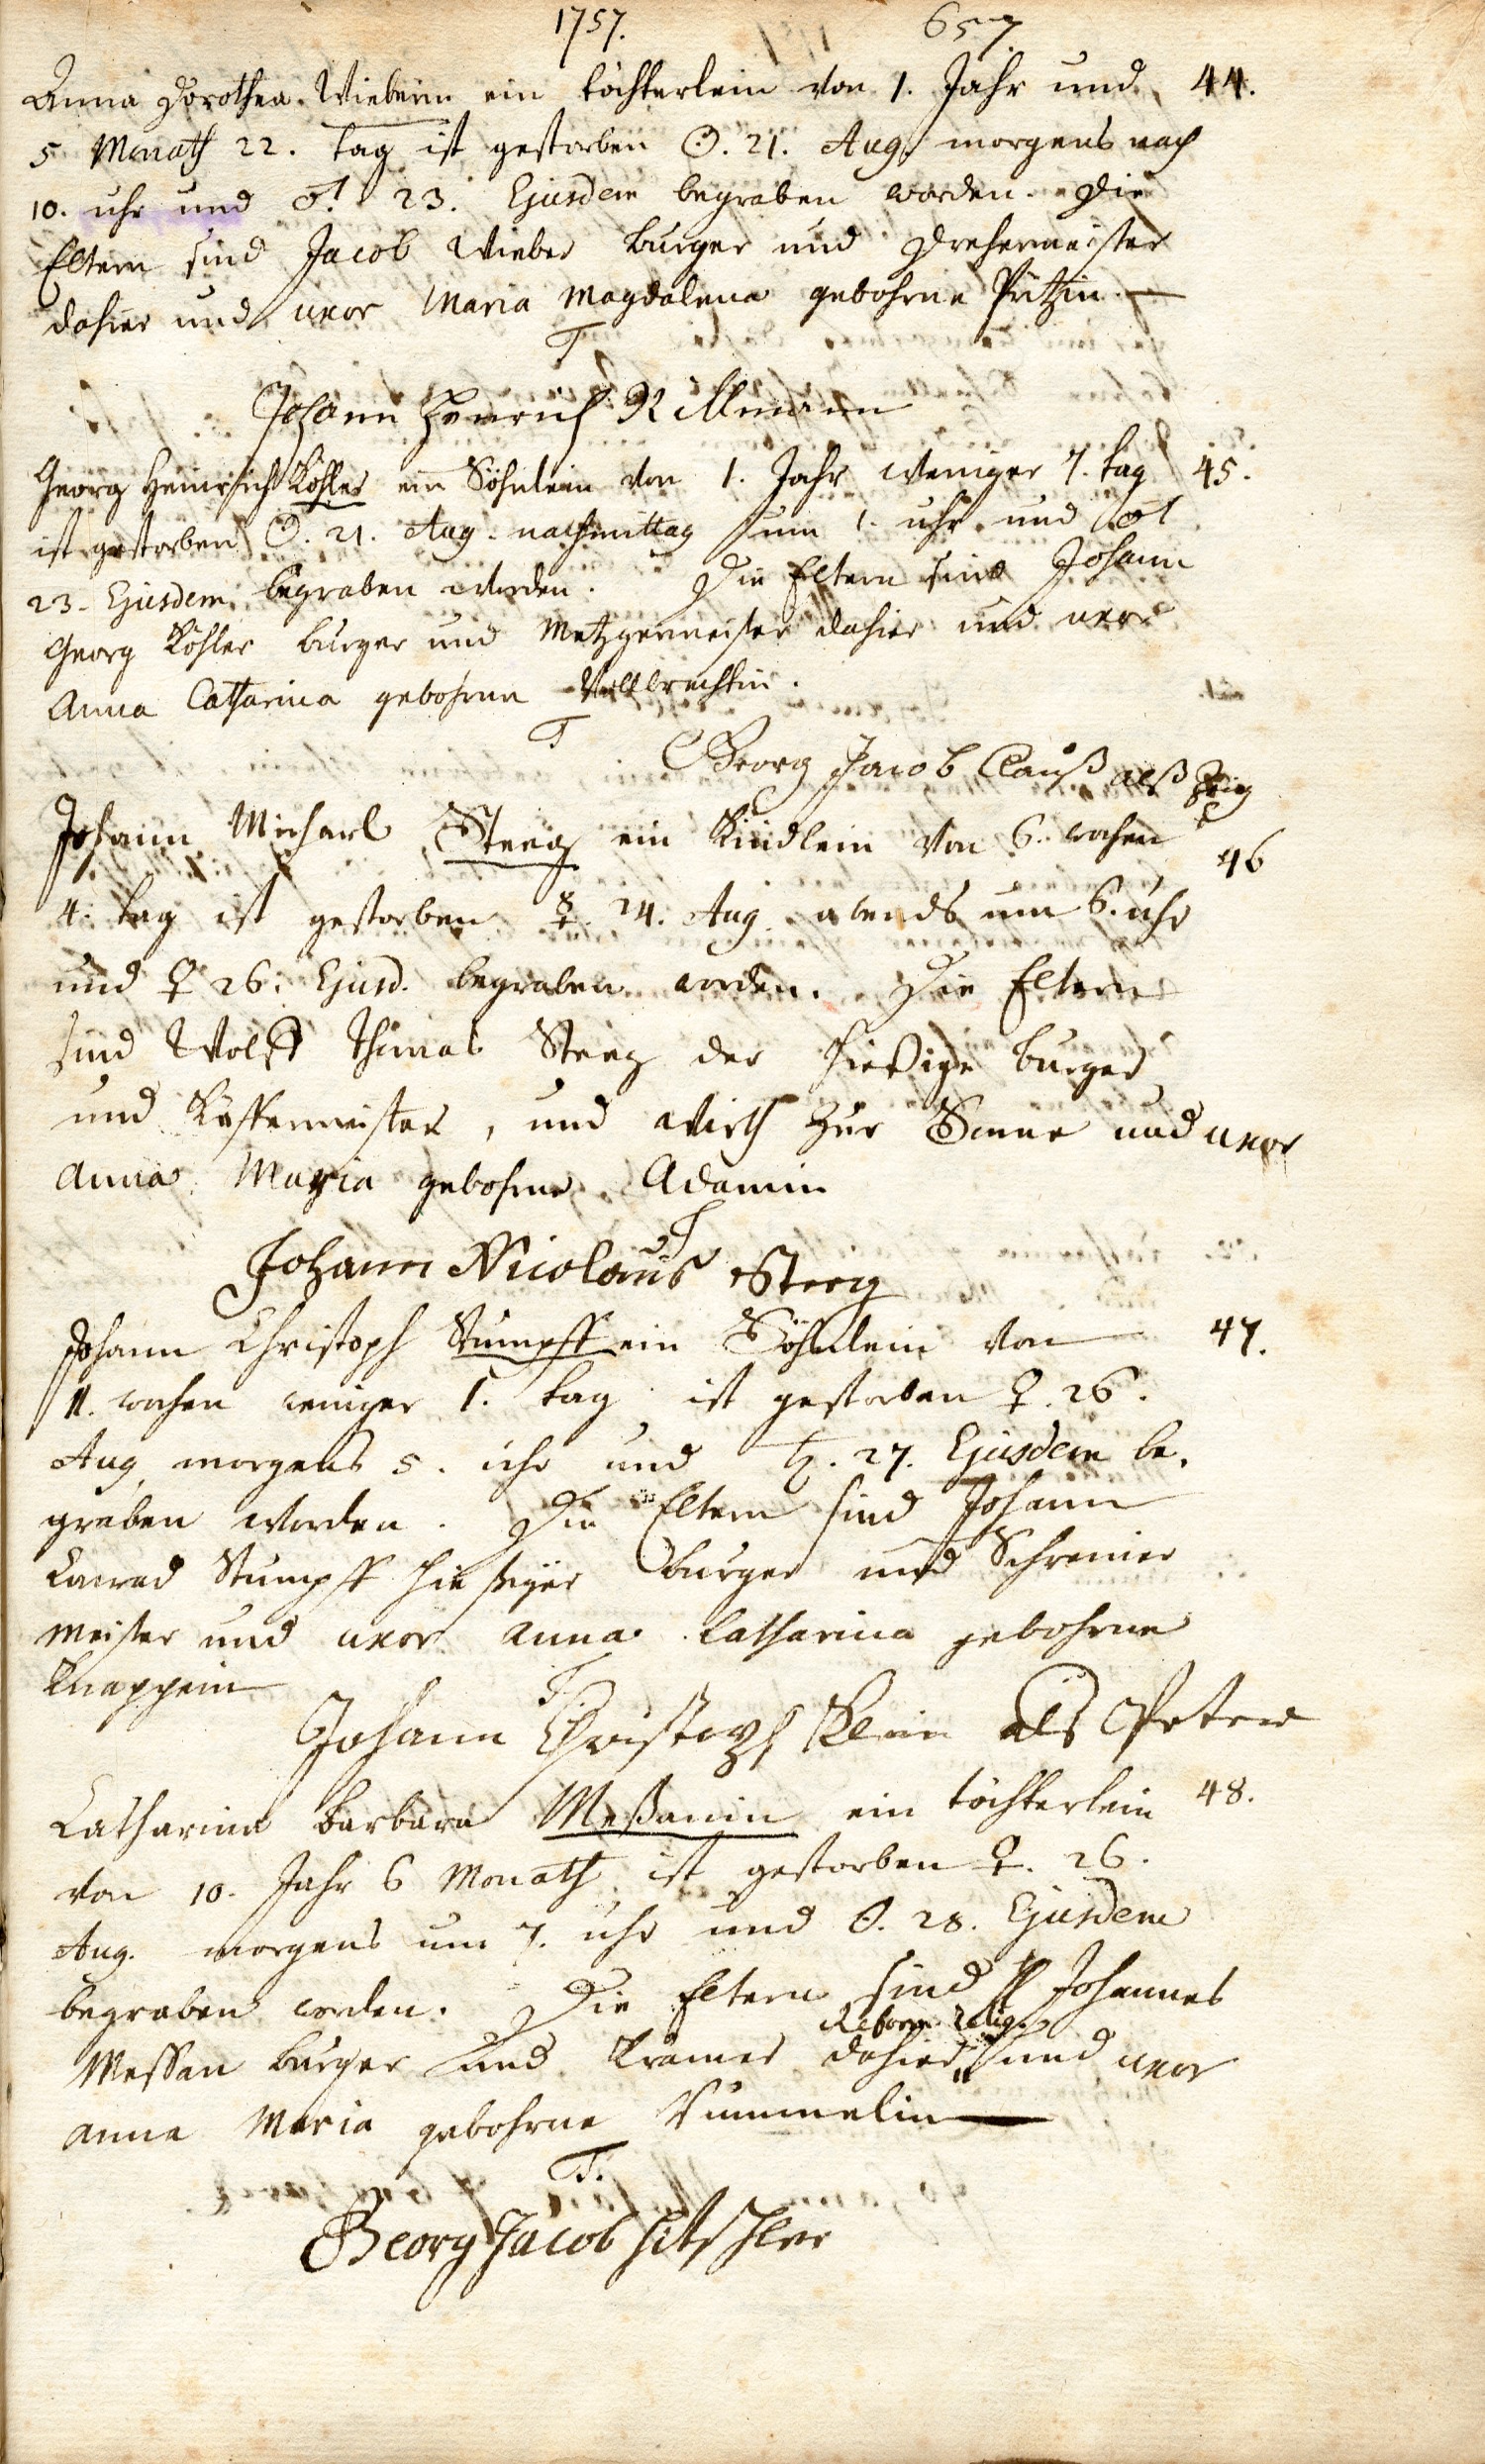 1757. 657
Anna Dorothea Wieberin ein töchterlein von 1. Jahr und 44.
5 Monath 22. tag ist gestorben ☉. 21. Aug. morgens nach
10. uhr und ♂. 23. Ejusdem begraben worden. Die
Eltern sind Jacob Wieber burger und Drehermeister
dahier und uxor Maria Magdalena gebohrne
T
Johann Henrich Rillmann
Georg Heinrich Köhler ein Söhnlein von 1. Jahr weniger 7. tag 45.
ist gestorben ☉. 21. Aug. nachmittag um 1. uhr und ♂
23. Ejusdem begraben worden. Die Eltern sind Johann
Georg Köhler burger und Metzgermeister dahier und uxor
Anna Catharina gebohrne Vollbrechtin.
T
Georg Jacob Clauß alß Zeig
Johann Michael Steeg ein Kindlein von 6. wochen 46
4. tag ist gestorben ☿. 24. Aug. abends um 6. uhr
und ♀ 26. Ejusd. begraben worden. Die Eltern
sind Wolff Thomas Steeg der hießige burger
und Küffermeister, und Wirth zur Sonne und uxor
Anna Maria gebohrne Adamin
T
Johann Nicolaus Steeg
Johann Christoph Stumpff ein Söhnlein von 47.
11. wochen weniger 1. tag ist gestorben ♀. 26.
Aug morgens 5. uhr und ♄. 27. Ejusdem be,
graben worden. Die Eltern sind Johann
Conrad Stumpff hießiger burger und Schreiner
meister und uxor Anna Catharina gebohrne
Knappin
T
Johann Christoph Klein als Petter
Catharina Barbara Meßanin ein töchterlein 48.
von 10. Jahr 6 Monath ist gestorben ♀. 26.
Aug. morgens um 7. uhr und ☉. 28. Ejusdem
begraben worden. Die Eltern sind Johannes
Reform. Relig.
Messan burger und Krämer dahier und uxor
Anna Maria gebohrne
T.
Georg Jacob Hitschler